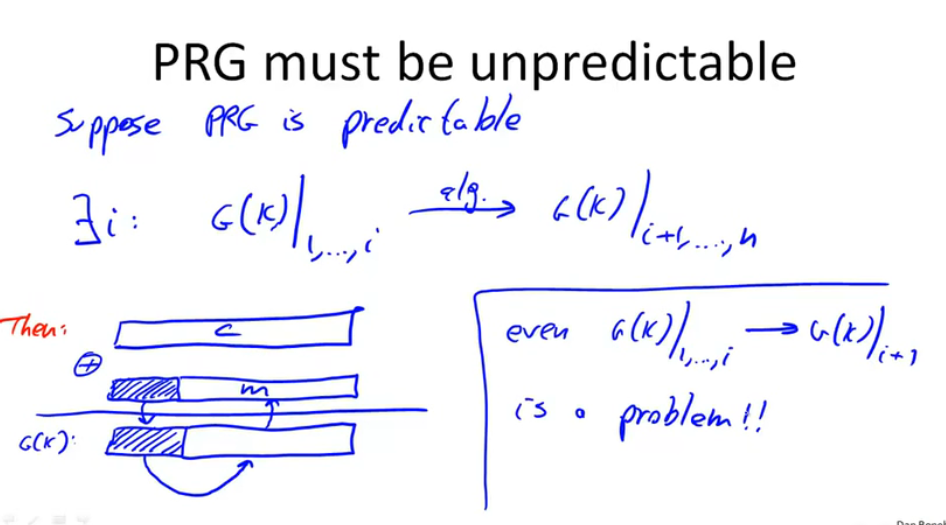 PRG must be unpredictable
Suppose PRG is predictable
∃i: G(K)|1,...,i alg.→ G(K)|i+1,...,n
Then:
c
⊕
m
G(K):
even G(K)|1,...,i → G(K)|i+1
is a problem!!